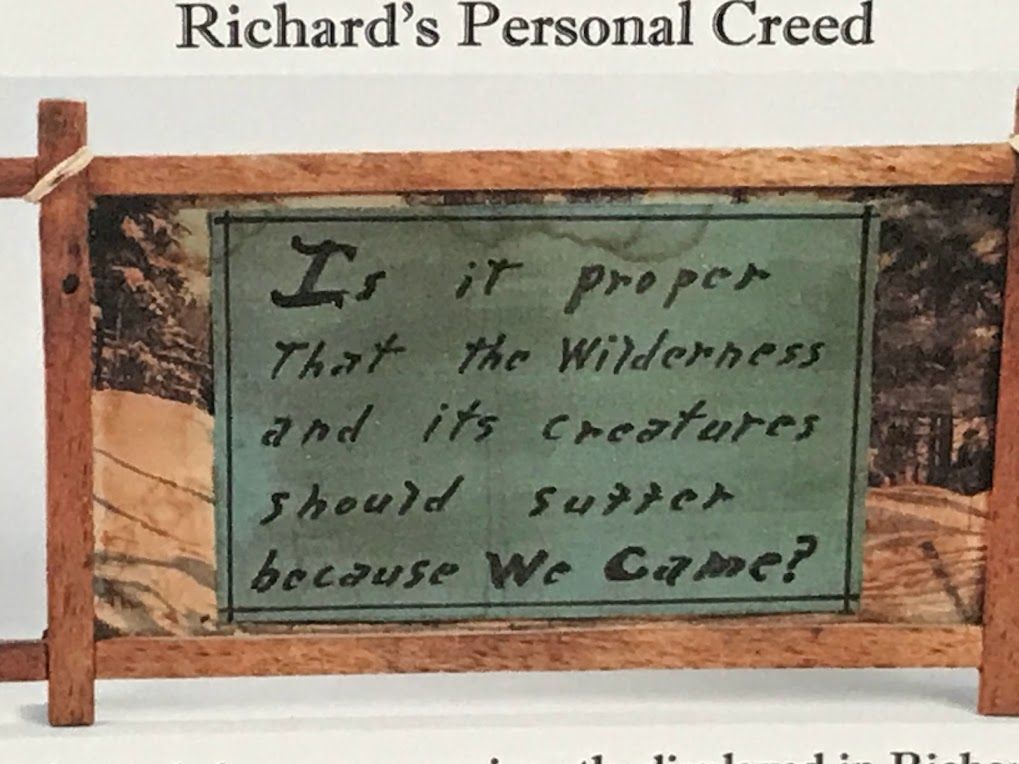 Richard's Personal Creed
Is it proper
That the Wilderness
and its creatures
should suffer
because We Came?
displayed in